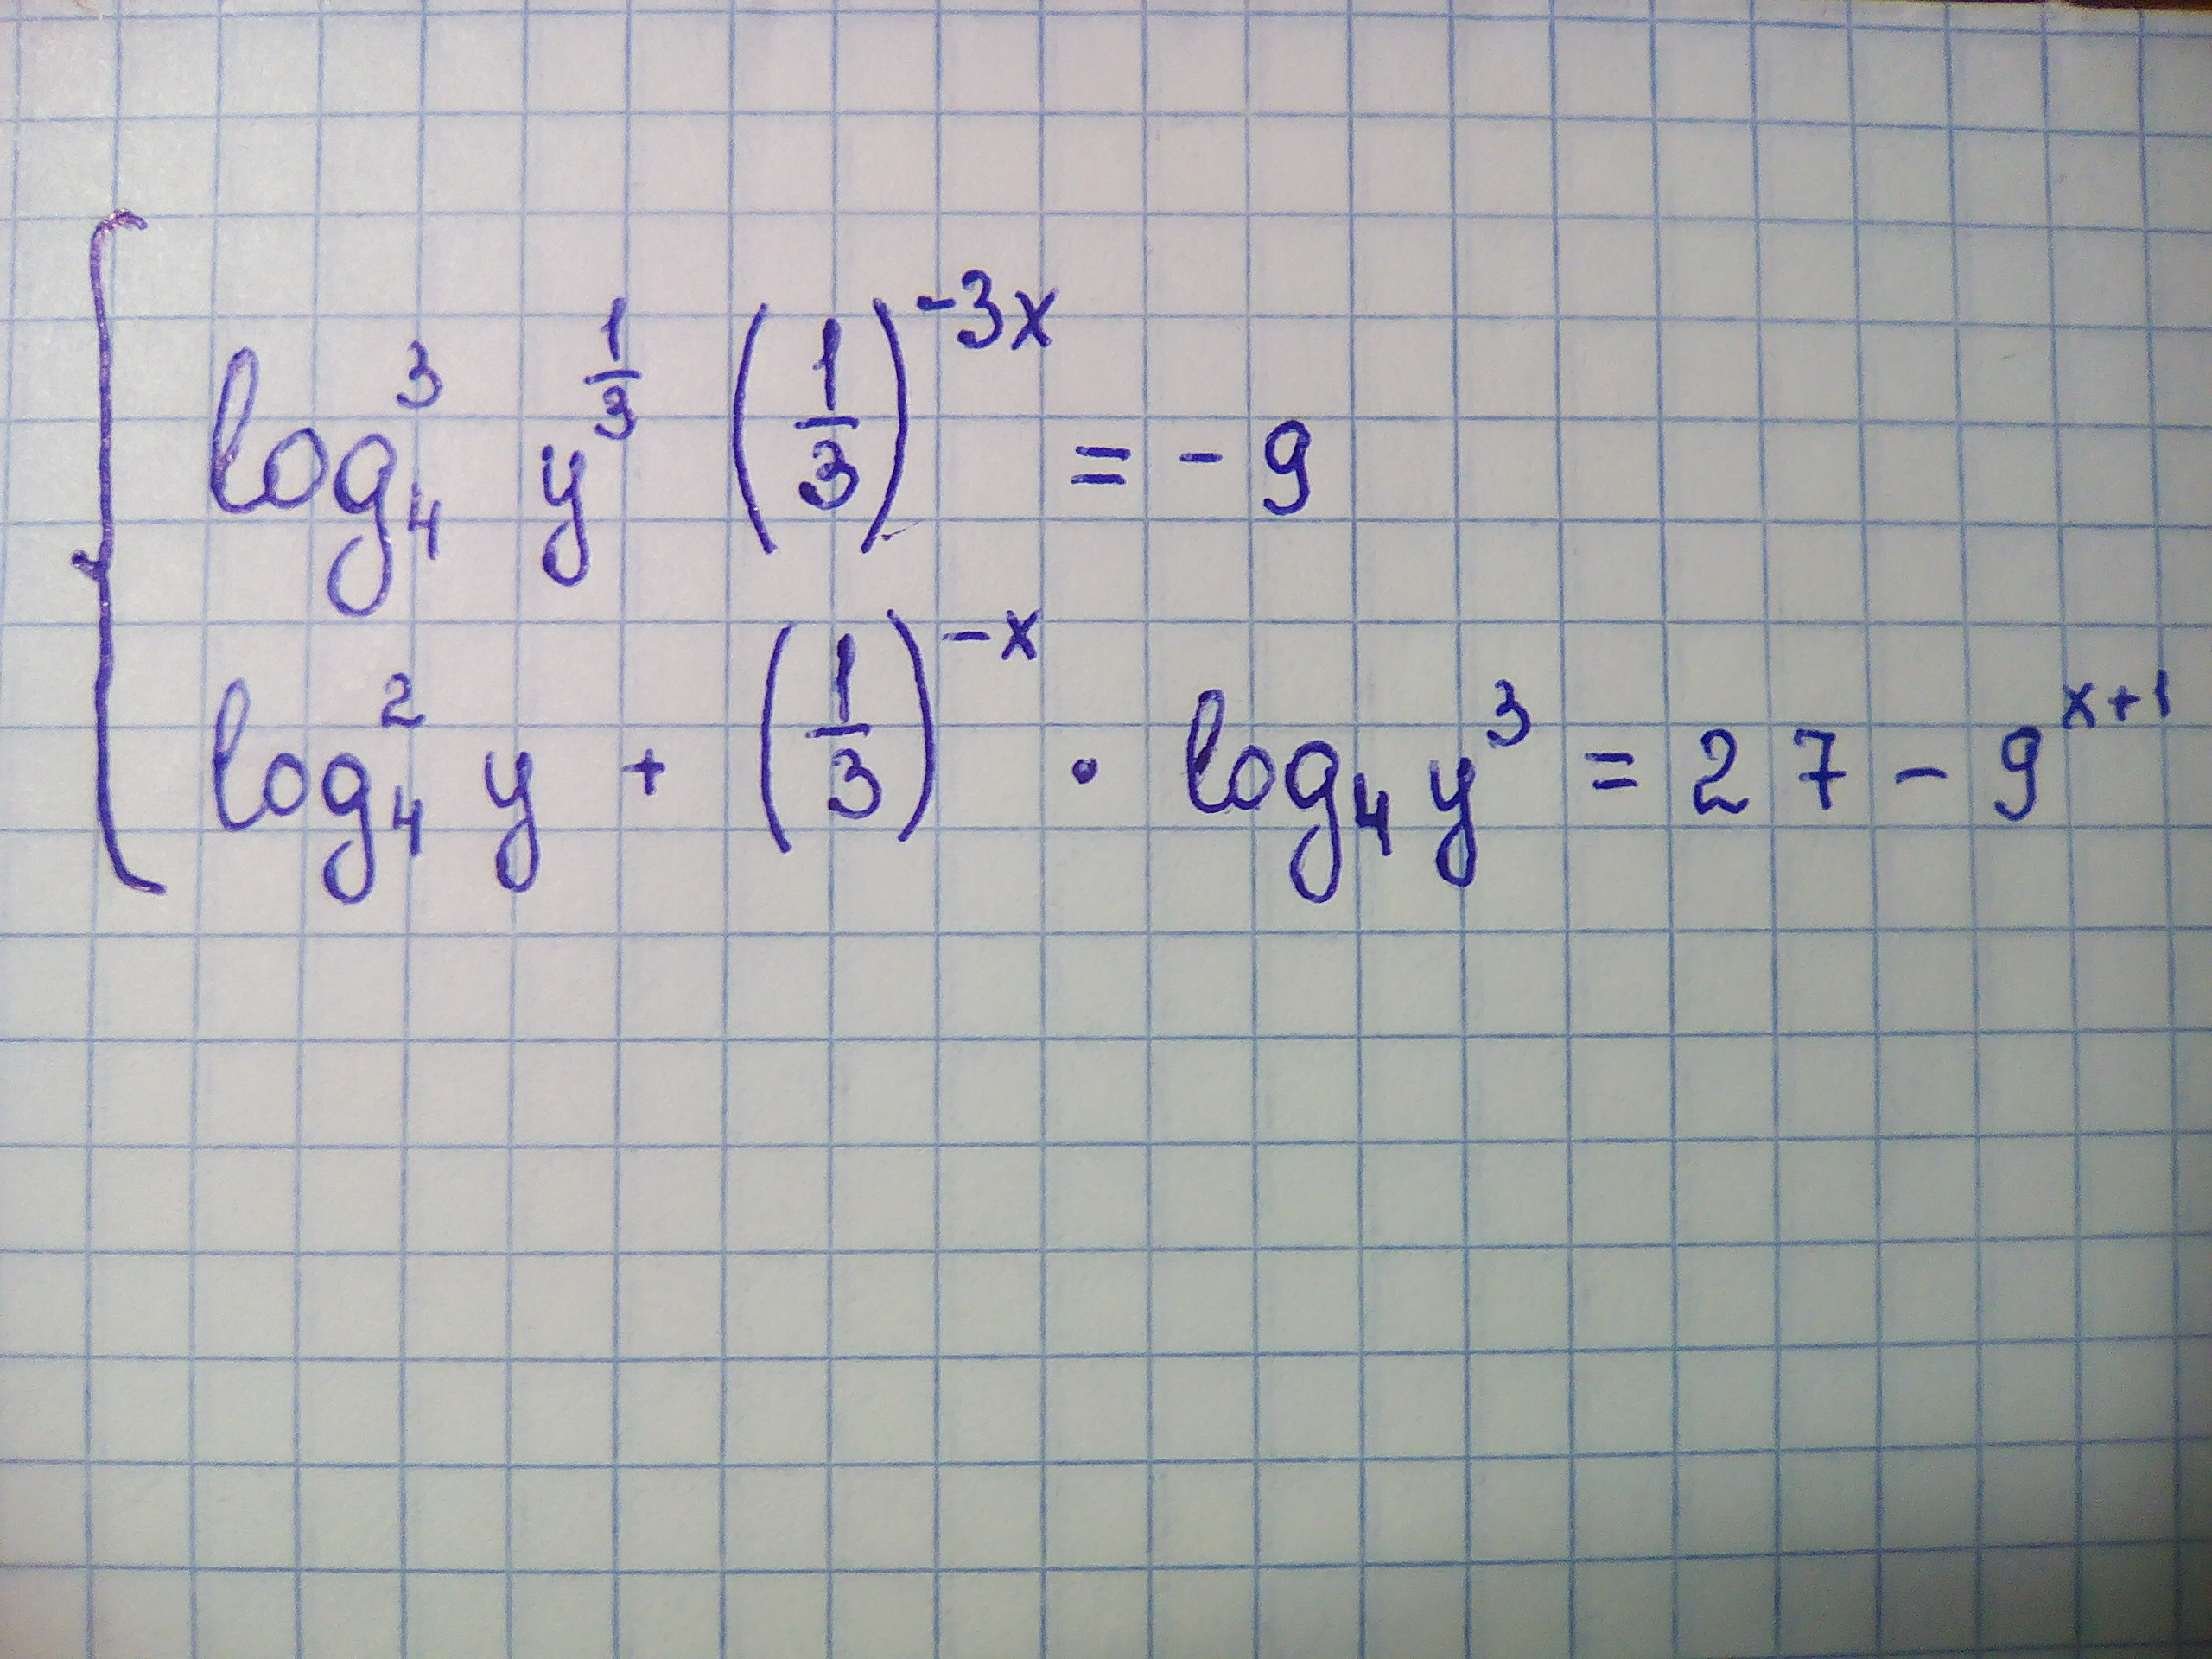 log₄³ y^(1/3) (1/3)^(-3x) = -9
log₄² y + (1/3)^(-x) · log₄ y³ = 27 - 9^(x+1)